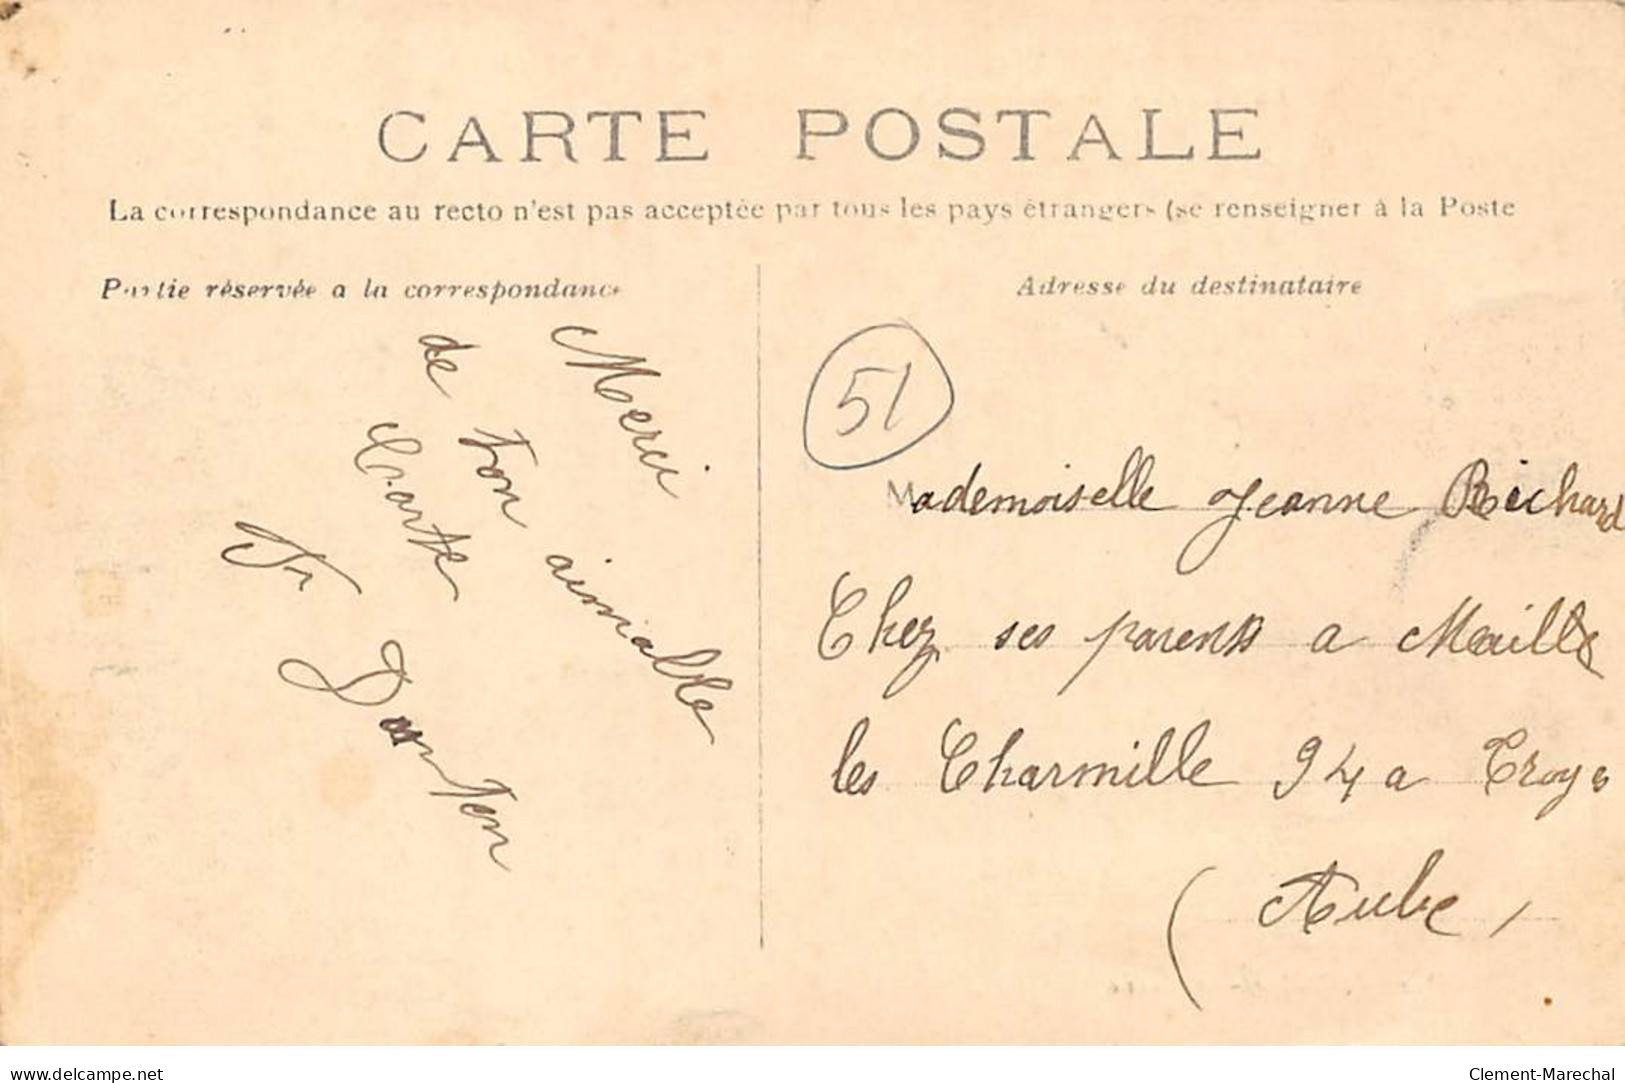 CARTE POSTALE
La correspondance au recto n'est pas acceptée par tous les pays étrangers (se renseigner à la Poste
Partie réservée a la correspondance
Adresse du destinataire
Merci
de ton aimable
Carte
51
Mademoiselle Jeanne Richard
Chez ses parents a
les Charmille 94 a Troyes
(Aube)
www.delcampe.net
Clement-Marechal